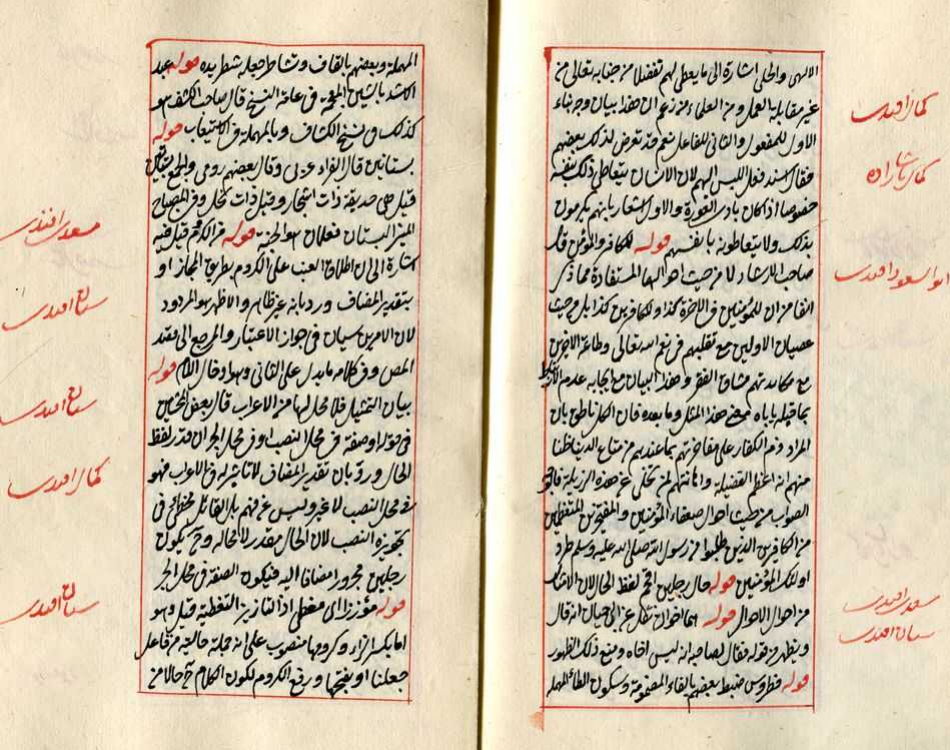 الالهى والحلى اشارة الى ما يعطى لهم تفضلا من جنابه تعالى من
غير مقابلة العمل ومن العلماء من زعم ان هذا بيان وجه بناء
الاول للمفعول والثانى للفاعل نعم قد تعرض لذلك بعضهم
فقال اسند فعل اللبس اليهم لان الانسان يتعاطى ذلك بنفسه
خصوصا اذا كان بادى العورة والاول اشعار بانهم يكرمون
بذلك ولا يتعاطونه بانفسهم قوله للكافر والمؤمن قال
صاحب الارشاد لا من حيث احوالهما المستفادة مما ذكر
انفا من ان للمؤمنين فى الاخرة كذا وللكافرين كذا بل من حيث
عصيان الاولين مع تقلبهم فى نعم الله تعالى وطاعة الاخرين
مع مكابدتهم مشاق الفقر وهذا البيان مع ايجابه عدم
بما قبله ياباه هذا المثل وما بعده فان الكل ناطق بان
المراد ذم الكفار على مفاخرتهم بما عندهم من متاع الدنيا ظنا
منهم انه اعظم الفضيلة
الصواب من حيث احوال صعفاء المؤمنين و
من الكافرين الذين طلبوا من رسول الله صلى الله عليه وسلم طرد
اولئك المؤمنين قوله حال رجلين اقحم لفظ الحال لان
من احوال الاحوال قوله هما اخوان نقل عن ابى حيان انه قال
ويظهر من قوله فقال لصاحبه انه ليس اخاه ومنع ذلك الظهور
قوله فطروس ضبط بعضهم بالفاء المضمومة وسكون الطاء المهملة
كمال افندى
كمال باشا زاده
ابو السعود افندى
سعدى افندى
سنان افندى
المهملة وبعضهم بالقاف وشاطر جعله شطر يده قوله عبد
الاشد بالشين المعجمة فى عامة النسخ قال صاحب الكشف هو
كذلك فى نسخ الكشاف وبالمهملة فى الاستيعاب قوله
بستانين قال الفراء عربى وقال بعضهم رومى والجمع بساتين
قيل هى حديقة ذات اشجار وقيل ذات نخل وفى المصباح
المنير البستان فعلان هو الجنة قوله من الكروم قيل فيه
اشارة الى ان اطلاق العنب على الكروم بطريق المجاز او
بتقدير المضاف ورد بانه غير ظاهر والاظهر هو المردود
لان الامرين سيان فى جواز الاعتبار والمرجع الى قصد
المص وفى كلامه ما يدل على الثانى وهو ادخال اللام قوله
بيان التمثيل فلا محل لها من الاعراب قال بعض المحشين
فى قوله او صفة فى محل النصب او فى محل الجر ان قدر لفظ
الحال ورد بان تقدير المضاف لا تاثير له فى الاعراب فهو
فى محل النصب لا غير وليس غرضهم بل القائل مخطئ فى
تجويزه النصب لان الحال مقدر لا محالة وح يكون
رجلين مجرورا مضافا اليه فيكون الصفة فى محل الجر
قوله مؤزرا اى مغطى اذ التازير التغطية قيل هو
اما بكسر الزاء و كرومها منصوب على انه جملة حالية من فاعل
جعلنا او بفتحها ورفع الكروم لكون الكلام ح حالا من
سعدى افندى
سنان افندى
سنان افندى
كمال افندى
سنان افندى